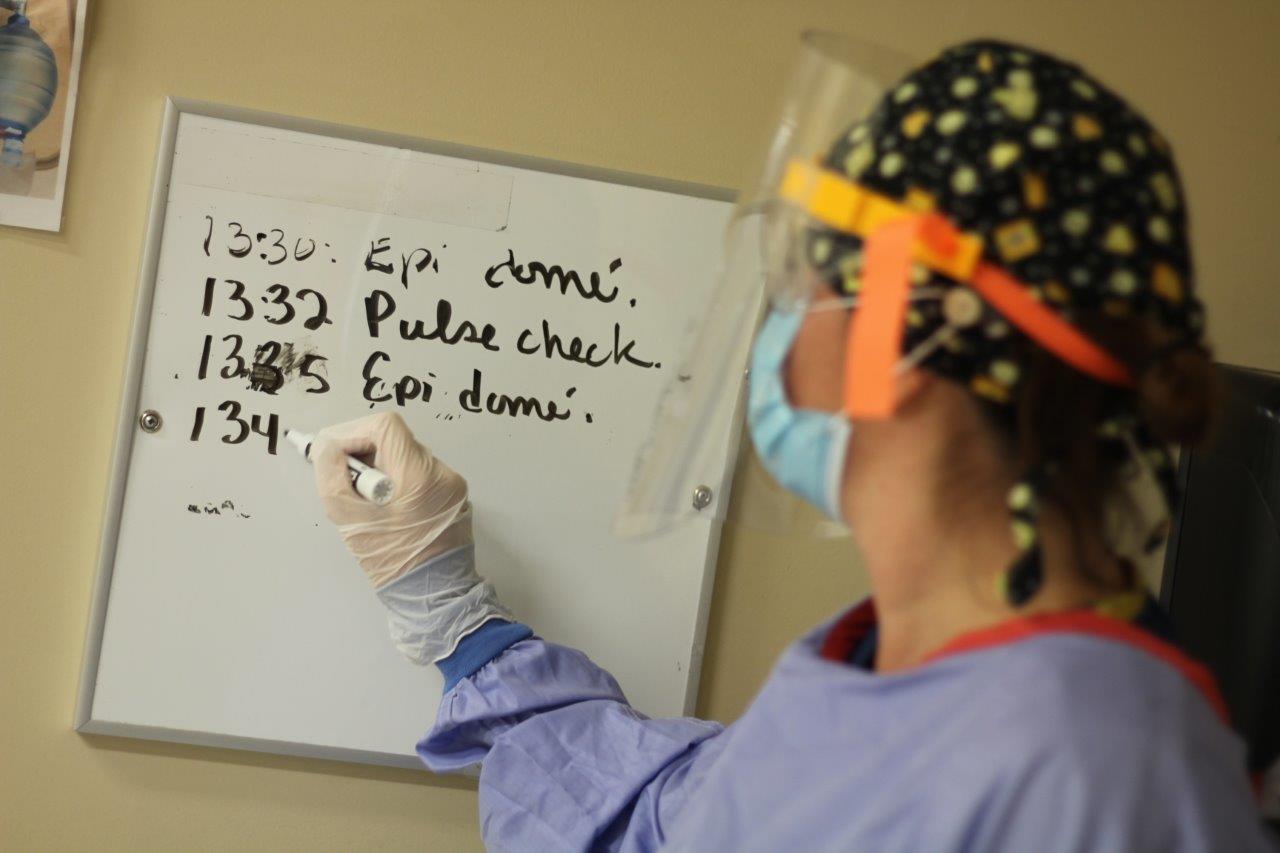 13:30: Epi donné.
13:32 Pulse check.
13:35 Epi donné.
134